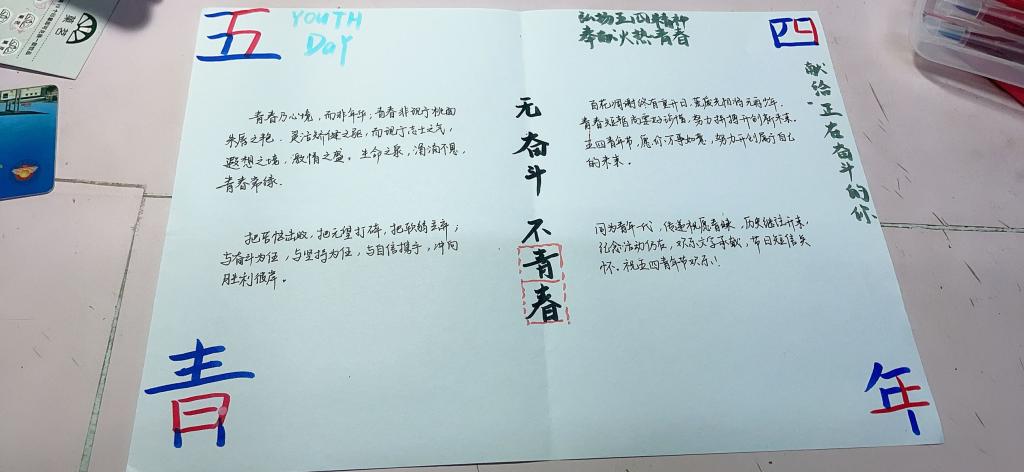 五
YOUTH
Day
弘扬五四精神
奉献火热青春
四
献给正在奋斗的你
青春乃心境，而非年华；青春非现于桃面
朱唇之艳，灵活矫健之躯，而现于志士之气，
遐想之境，激情之盛。生命之泉，涓涓不息，
青春常绿。
百花凋谢终有重开日，
青春短暂尚要好珍惜，努力拼搏开创新未来。
五四青年节，愿你万事如意，努力开创属于自己
的未来。
无奋斗不青春
把苦恼出败，把无望打碎，把软弱丢弃；
与奋斗为伍，与坚持为伍，与自信携手，冲向
胜利彼岸。
同为青年一代，传递祝愿青睐，历史继往开来，
纪念活动仍在，欢乐文字承载，节日短信关
怀。祝五四青年节欢乐！
青
年